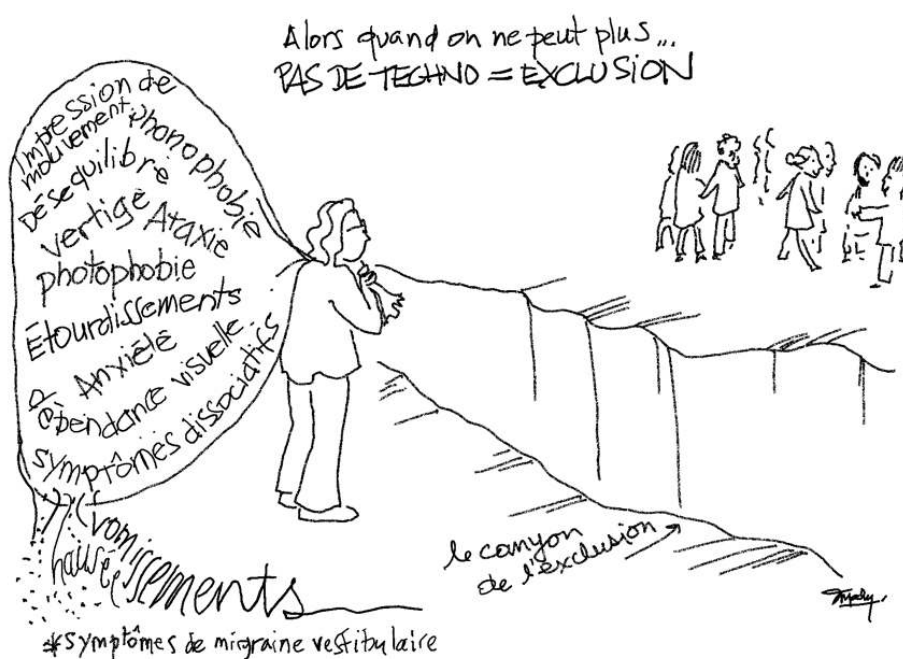 Alors quand on ne peut plus...
PAS DE TECHNO = EXCLUSION
Impression de
mouvement
phonophobie
Déséquilibre
vertige
Ataxie
photophobie
Étourdissements
Anxiété
Dépendance visuelle
symptômes dissociatifs
vomissements
nausées
le canyon
de l'exclusion
*symptômes de migraine vestibulaire